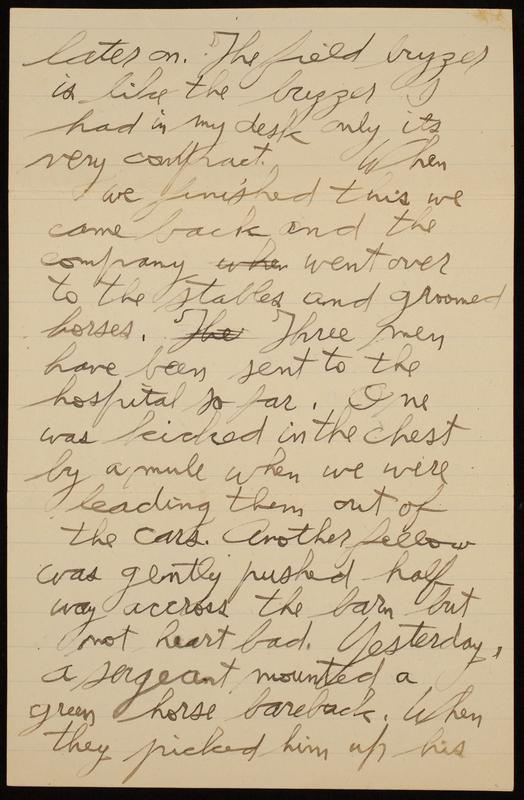 later on. The field buzzer
is like the buzzer I
had in my desk only its
very contract. When
we finished this we
came back and the
company when went over
to the stables and groomed
horses. The Three men
have been sent to the
hospital so far. One
was kicked in the chest
by a mule when we were
leading them out of
the cars. Another fellow
was gently pushed half
way accross the barn but
not heart bad. Yesterday,
a sergeant mounted a
green horse bareback. When
they picked him up his